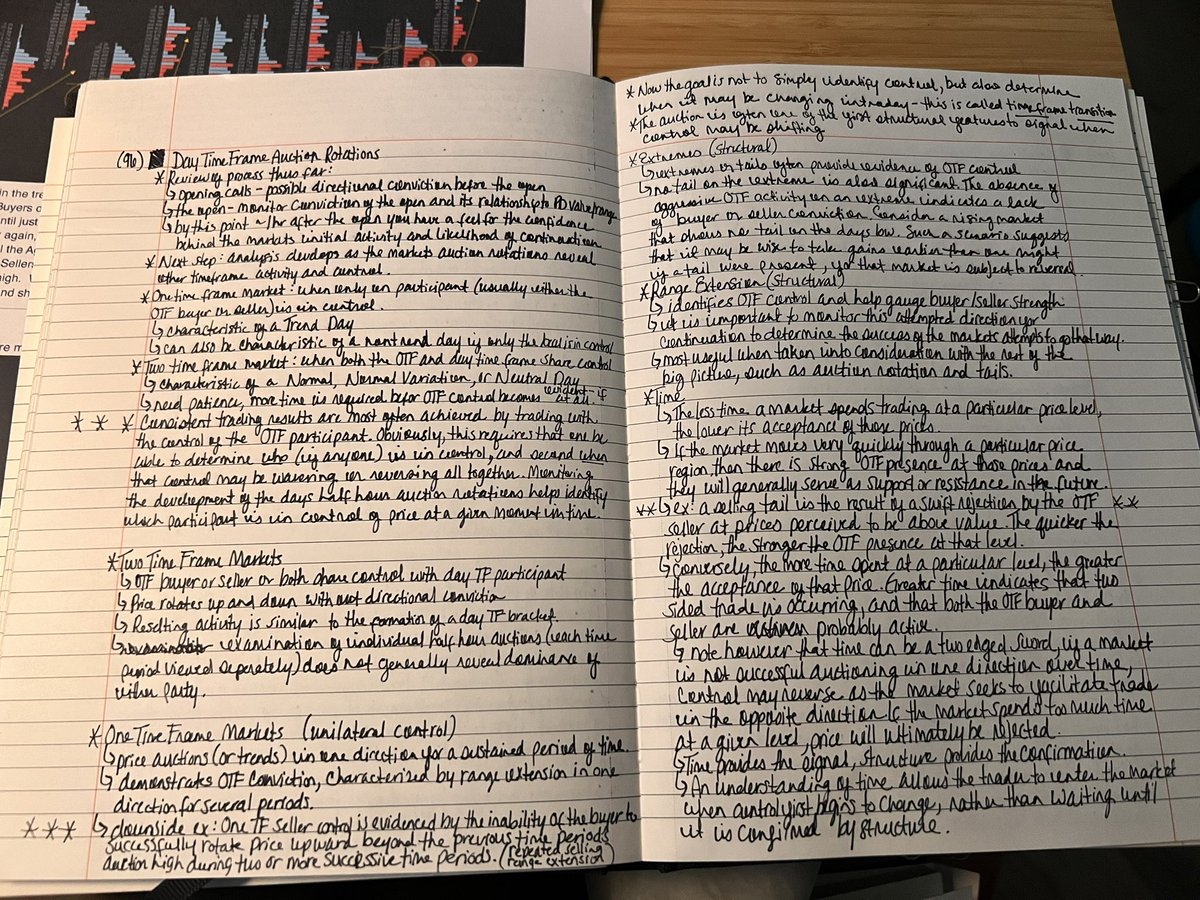 in the tre
Buyers o
ntil just
again,
the Ag
Sellen
high.
nd sh
3
4
(96) Day Time Frame Auction Rotations
* Review of process thus far:
↳ opening calls - possible directional conviction before the open
↳ the open - monitor conviction of the open and its relationship to PD value/range
↳ by this point ~1hr after the open you have a feel for the confidence
behind the markets initial activity and likelihood of continuation
* Next step: analysis develops as the markets auction rotations reveal
other timeframe activity and control.
* One time frame market: when only on participant (usually either the
OTF buyer or seller) is in control.
↳ characteristic of a Trend Day
↳ can also be characteristic of a nontrend day if only the local is in control
* Two time frame market: when both the OTF and day time frame share control
↳ characteristic of a Normal, Normal Variation, or Neutral Day
↳ need patience, more time is required befor OTF control becomes evident - if at all.
* * * Consistent trading results are most often achieved by trading with
the control of the OTF participant. Obviously, this requires that one be
able to determine who (if anyone) is in control, and second when
that control may be wavering or reversing all together. Monitoring
the development of the days half hour auction rotations helps identify
which participant is in control of price at a given moment in time.
* Two Time Frame Markets
↳ OTF buyer or seller or both share control with day TF participant
↳ Price rotates up and down without directional conviction
↳ Resulting activity is similar to the formation of a day TF bracket.
↳ examination of individual half hour auctions (each time
period viewed seperately) does not generally reveal dominance of
either party.
* One Time Frame Markets (unilateral control)
↳ price auctions (or trends) in one direction for a sustained period of time.
↳ demonstrates OTF conviction, characterized by range extension in one
direction for several periods.
*** ↳ downside ex: One TF seller control is evidenced by the inability of the buyer to
successfully rotate price upward beyond the previous time periods
auction high during two or more successive time periods. (repeated selling
range extension)
* Now the goal is not to simply identify control, but also determine
when it may be changing intraday - this is called timeframe transition
* The auction is often one of the first structural features to signal when
control may be shifting
* Extremes (Structural)
↳ extremes or tails often provide evidence of OTF control
↳ no tail on the extreme is also significant. The absence of
aggressive OTF activity on an extreme indicates a lack
of buyer or seller conviction. Consider a rising market
that shows no tail on the days low. Such a scenario suggests
that it may be wise to take gains earlier than one might
if a tail were present, for that market is subject to reversal.
* Range Extension (Structural)
↳ identifies OTF control and help gauge buyer/seller strength
↳ it is important to monitor this attempted direction for
continuation to determine the success of the markets attempts to go that way.
↳ most useful when taken into consideration with the rest of the
big picture, such as auction rotation and tails.
* Time
↳ The less time a market spends trading at a particular price level,
the lower its acceptance of those prices.
↳ If the market moves very quickly through a particular price
region, than there is strong OTF presence at those prices and
they will generally serve as support or resistance in the future.
** ↳ ex: a selling tail is the result of a swift rejection by the OTF **
seller at prices perceived to be above value. The quicker the
rejection, the stronger the OTF presence at that level.
↳ Conversely, the more time spent at a particular level, the greater
the acceptance of that price. Greater time indicates that two
sided trade is occurring, and that both the OTF buyer and
seller are probably active.
↳ note however that time can be a two edged sword, if a market
is not successful auctioning in one direction over time,
control may reverse as the market seeks to facilitate trade
in the opposite direction. If the market spends too much time
at a given level, price will ultimately be rejected.
↳ Time provides the signal, structure provides the confirmation.
↳ An understanding of time allows the trader to enter the market
when control first begins to change, rather than waiting until
it is confirmed by structure.